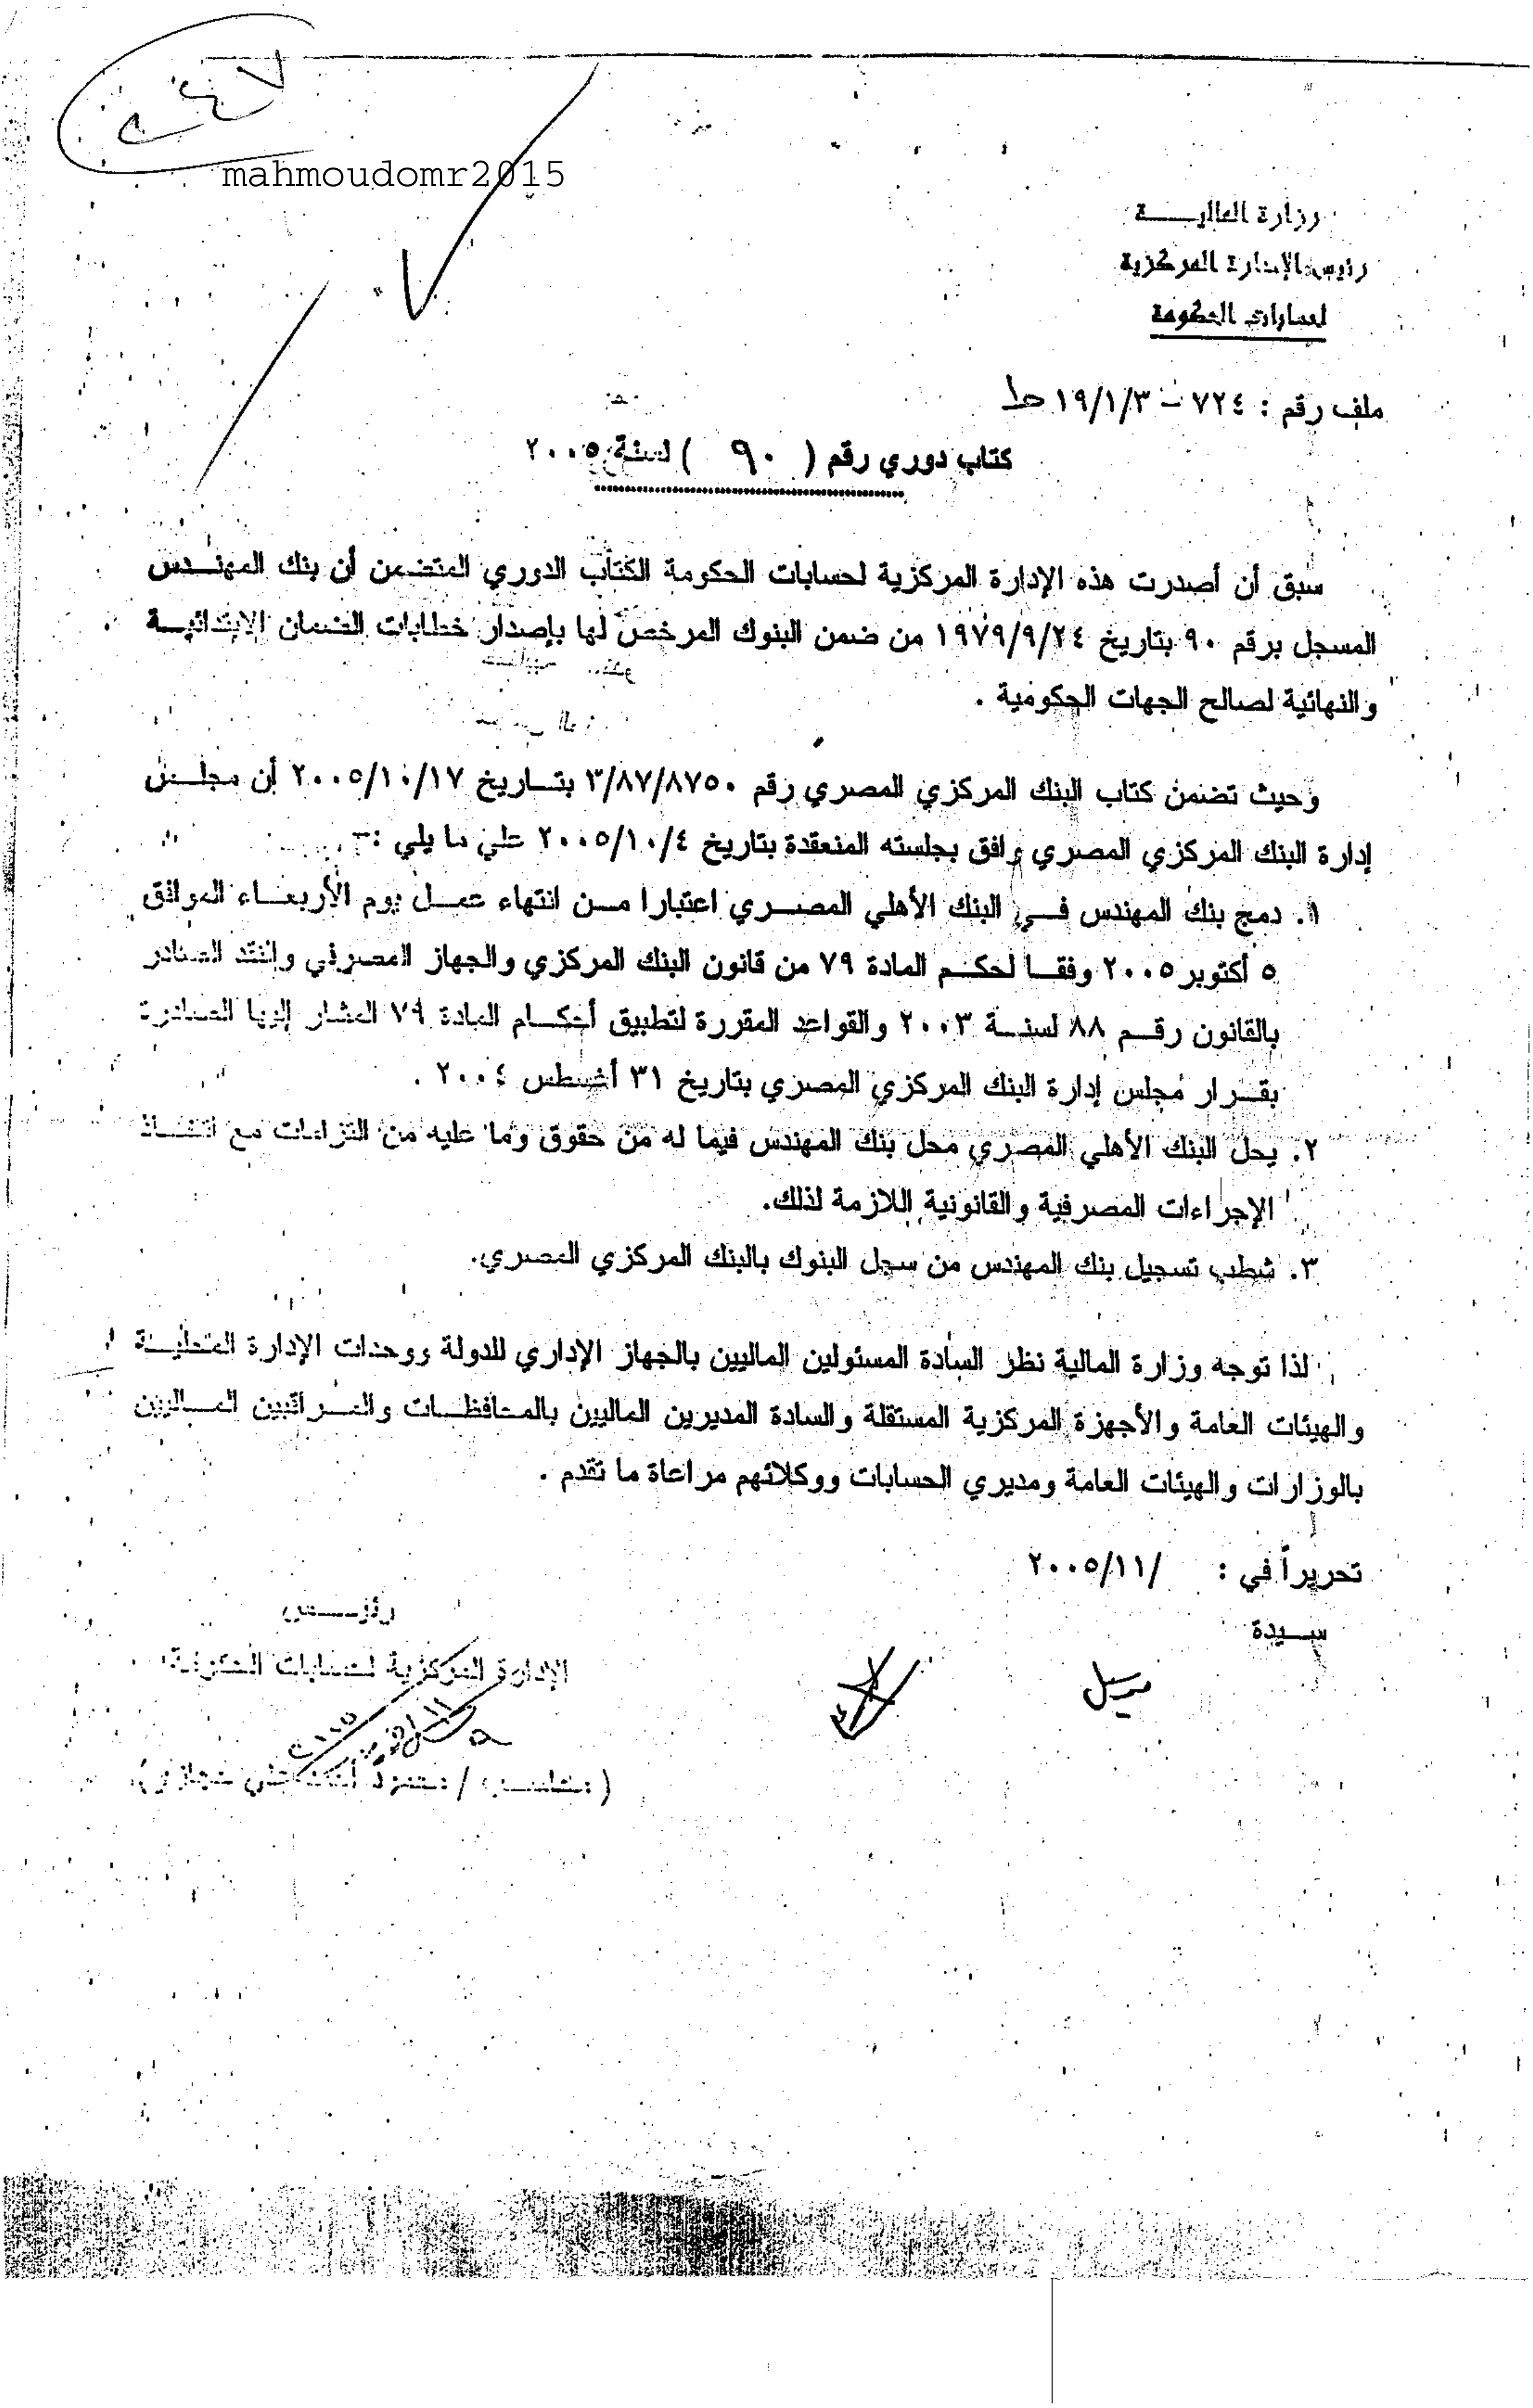 ٢٤٧
mahmoudomr2015
وزارة الماليـــــة
رئيس الإدارة المركزية
لحسابات الحكومة
ملف رقم : ٧٢٤ – ١٩/١/٣ ط
كتاب دوري رقم ( ٩٠ ) لسنة ٢٠٠٥
سبق أن أصدرت هذه الإدارة المركزية لحسابات الحكومة الكتاب الدوري المتضمن أن بنك المهنـدس
المسجل برقم ٩٠ بتاريخ ١٩٧٩/٩/٢٤ من ضمن البنوك المرخص لها بإصدار خطابات الضمان الابتدائيـة
والنهائية لصالح الجهات الحكومية .
وحيث تضمن كتاب البنك المركزي المصري رقم ٣/٨٧/٨٧٥٠ بتـاريخ ٢٠٠٥/١٠/١٧ أن مجلـس
إدارة البنك المركزي المصري وافق بجلسته المنعقدة بتاريخ ٢٠٠٥/١٠/٤ علي ما يلي :-
١. دمج بنك المهندس فـي البنك الأهلي المصـري اعتبارا مـن انتهاء عمـل يوم الأربعـاء الموافق
٥ أكتوبر ٢٠٠٥ وفقـا لحكـم المادة ٧٩ من قانون البنك المركزي والجهاز المصرفي والنقد الصادر
بالقانون رقـم ٨٨ لسنـة ٢٠٠٣ والقواعد المقررة لتطبيق أحكـام المادة ٧٩ المشار إليها الصادرة
بقـرار مجلس إدارة البنك المركزي المصري بتاريخ ٣١ أغسطس ٢٠٠٤ .
٢. يحل البنك الأهلي المصري محل بنك المهندس فيما له من حقوق وما عليه من التزامات مع اتخـاذ
الإجراءات المصرفية والقانونية اللازمة لذلك.
٣. شطب تسجيل بنك المهندس من سجل البنوك بالبنك المركزي المصري.
لذا توجه وزارة المالية نظر السادة المسئولين الماليين بالجهاز الإداري للدولة ووحدات الإدارة المحليـة
والهيئات العامة والأجهزة المركزية المستقلة والسادة المديرين الماليين بالمحافظـات والمـراقبين المـاليين
بالوزارات والهيئات العامة ومديري الحسابات ووكلائهم مراعاة ما تقدم .
تحريراً في : /٢٠٠٥/١١
سـيدة
رئيــس
الإدارة المركزية لحسابات الحكومة